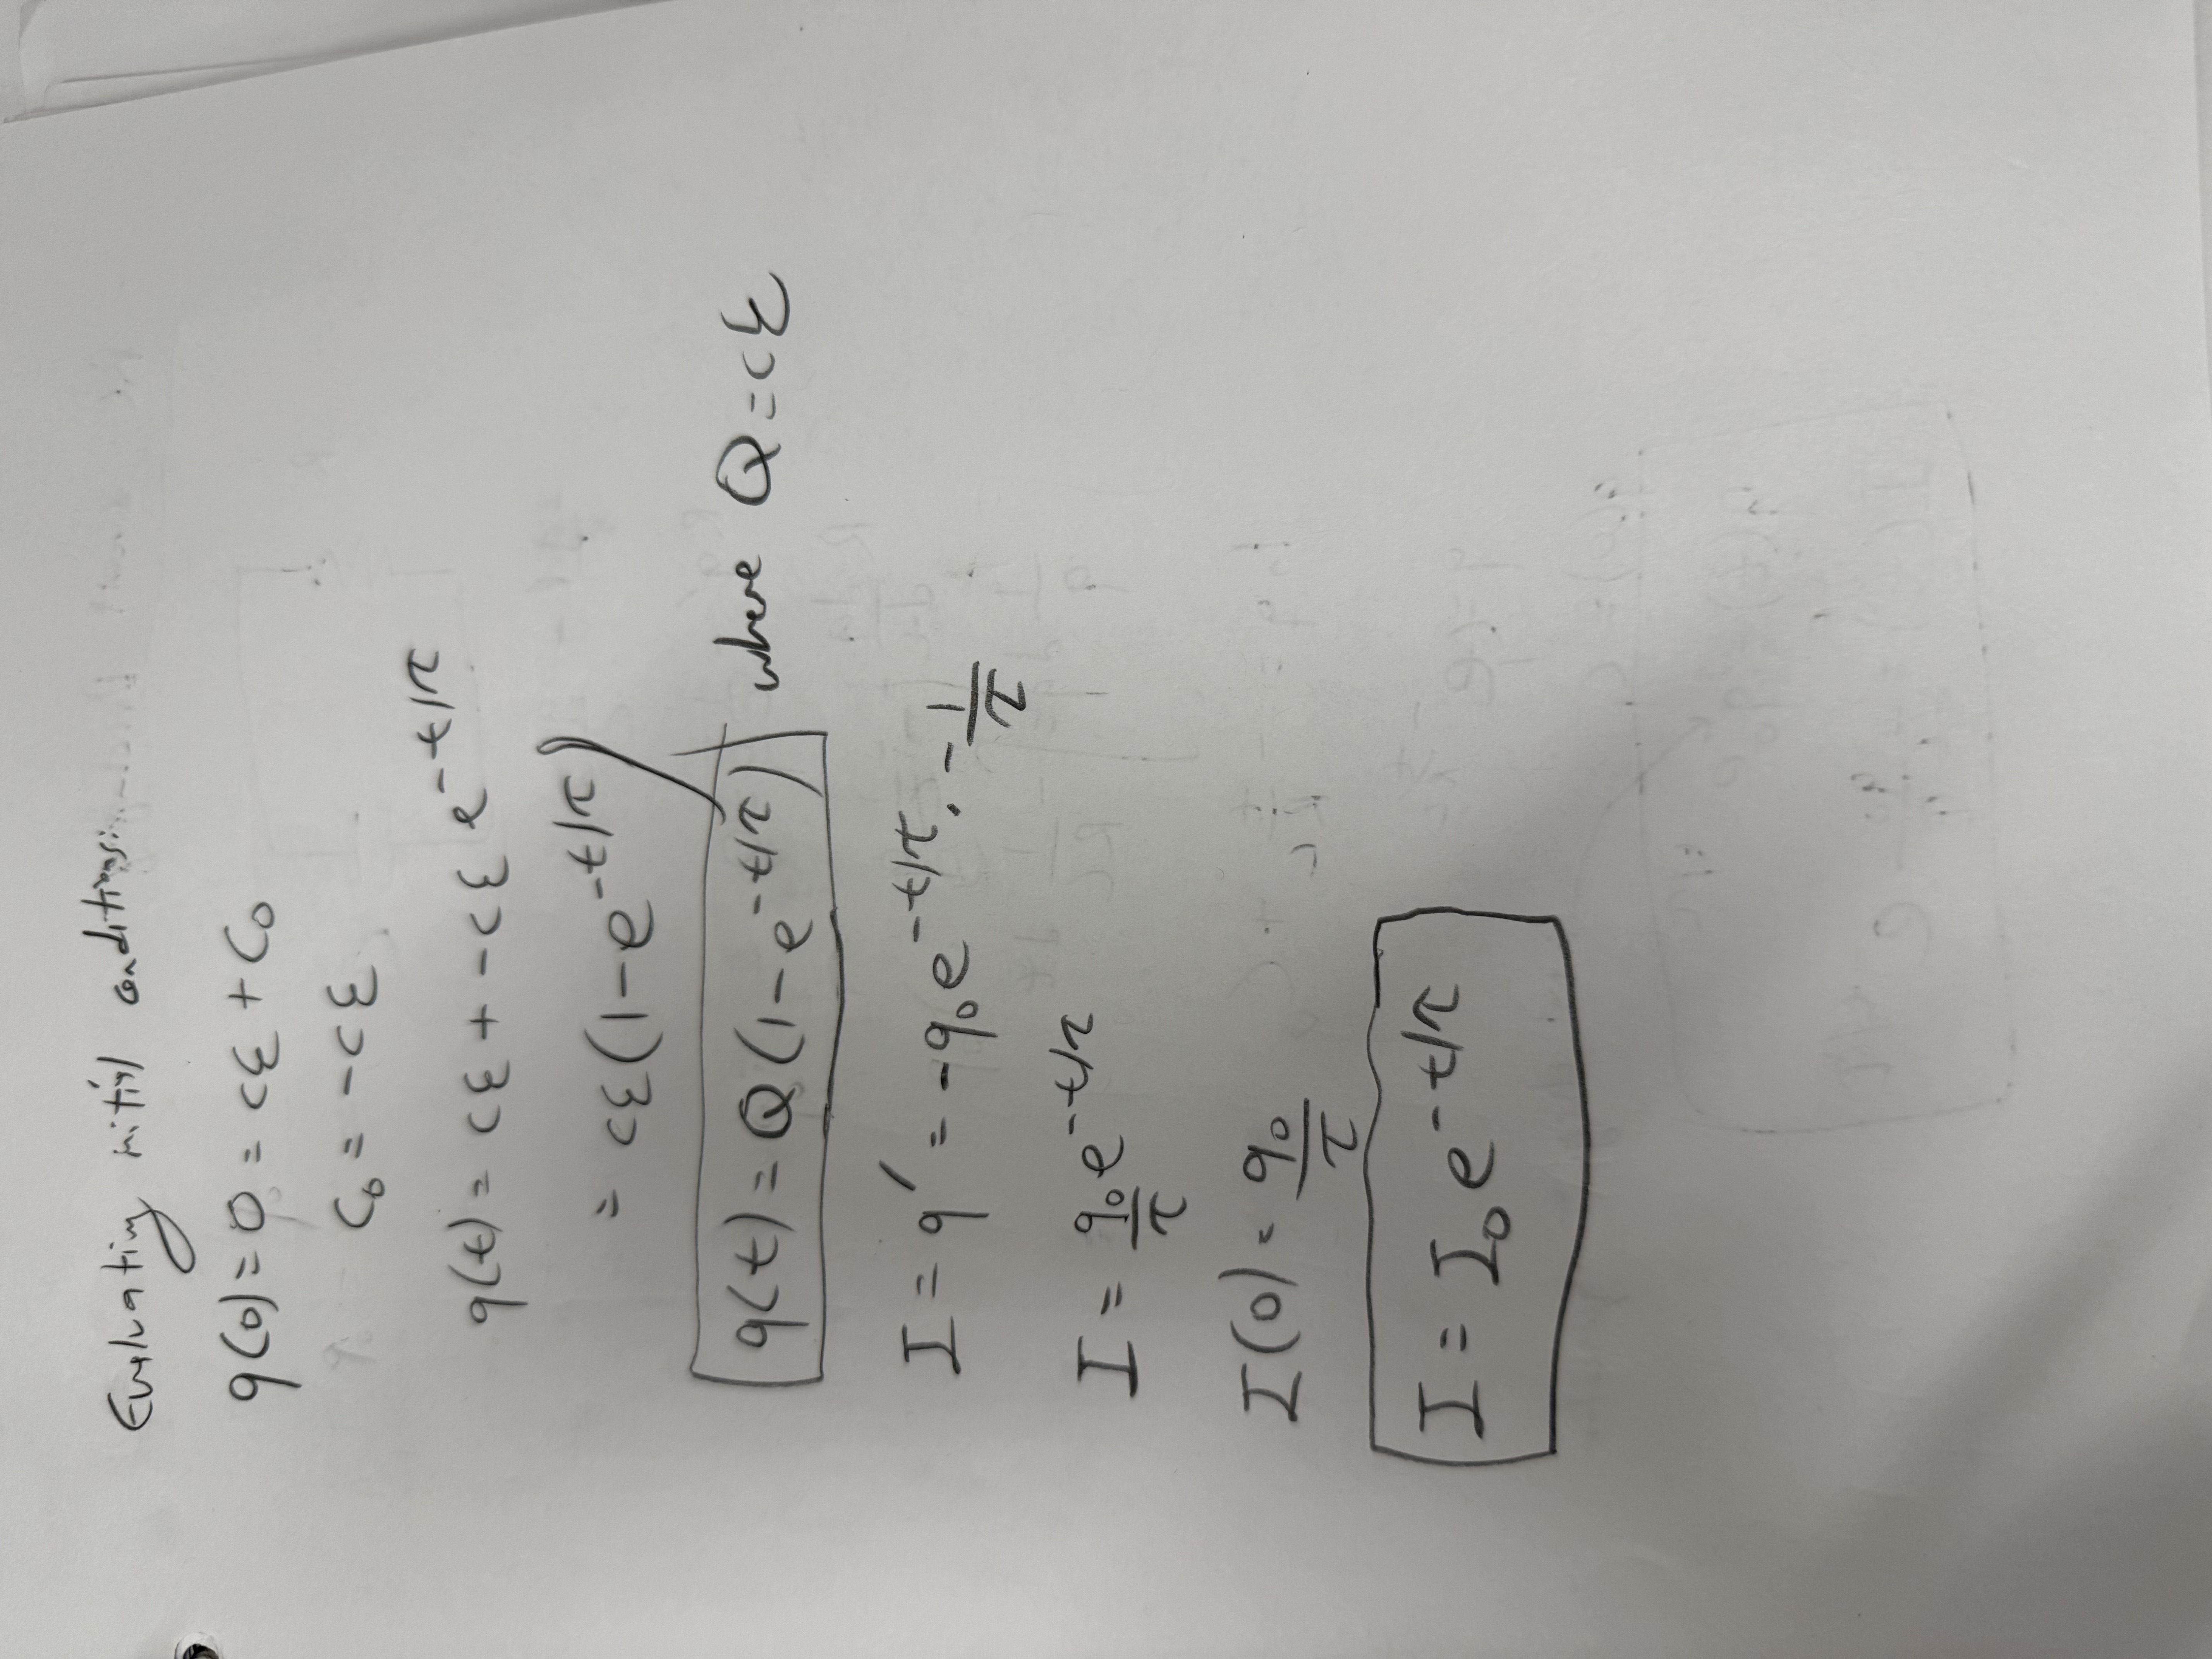 Evaluating initial conditions:
q(0) = 0 = cε + C₀
C₀ = -cε
q(t) = cε + -cε e^(-t/τ)
= cε(1 - e^(-t/τ))
q(t) = Q(1 - e^(-t/τ)) where Q = cε
I = q' = -q₀e^(-t/τ) · -1/τ
I = q₀/τ e^(-t/τ)
I(0) = q₀/τ
I = I₀ e^(-t/τ)